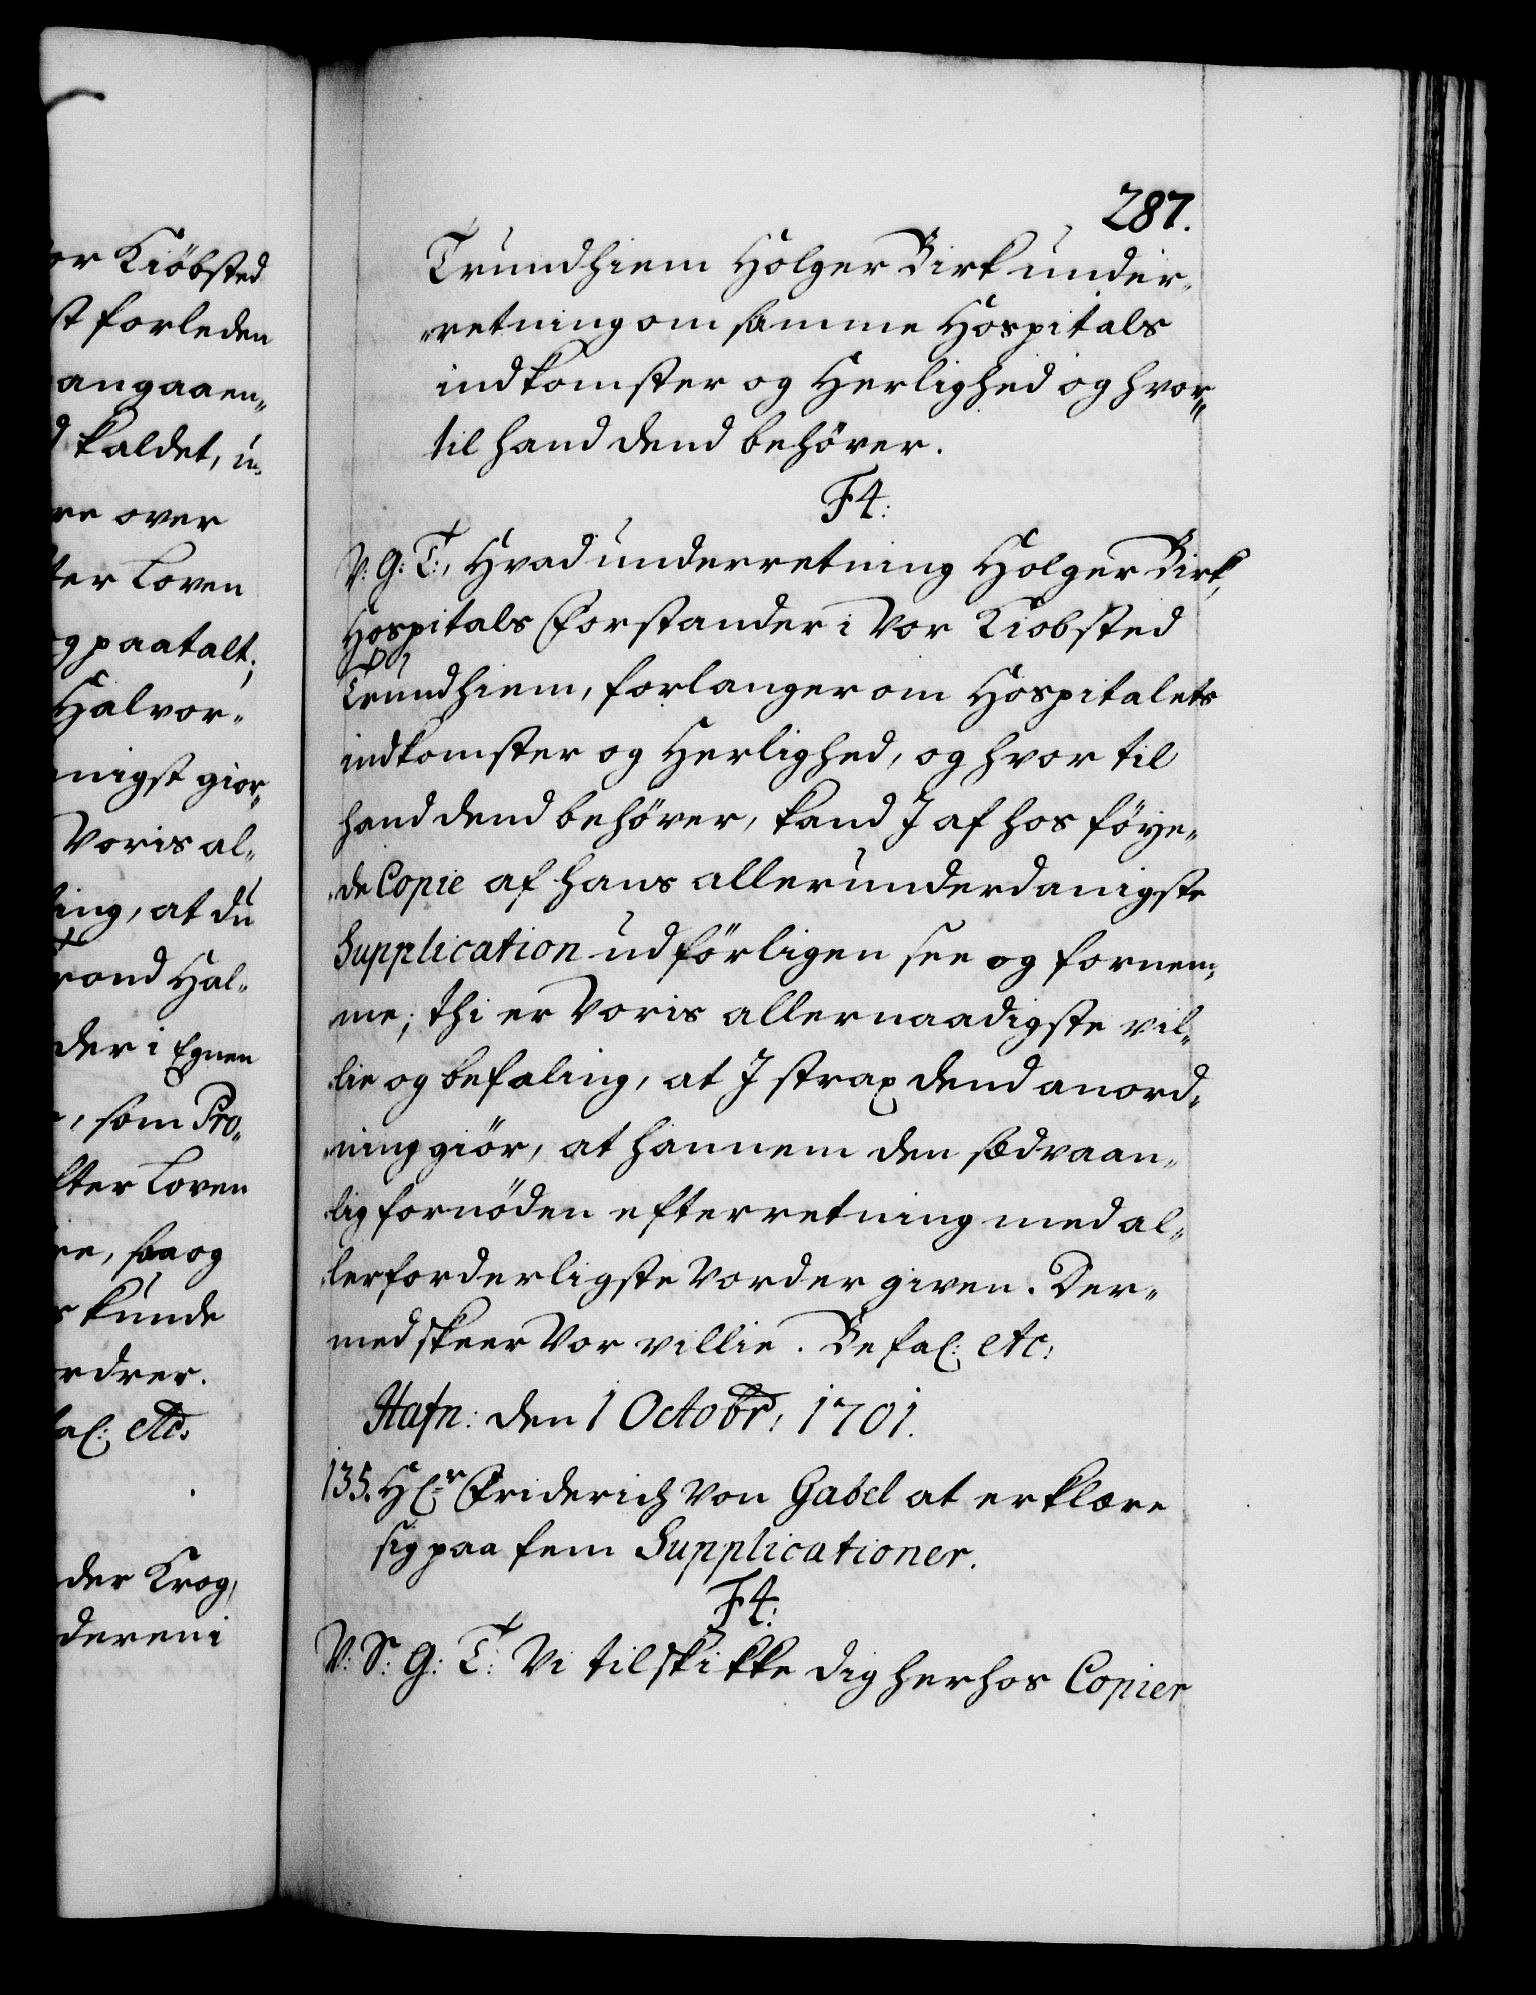 or Kiöbsted
st forleden
angaaen„
kaldet, u„
re over
ter Loven
g paatalt;
Halvor„
nigst gior„
Voris al„
ling, at du
rond Hal„
der i Egnen
, som Pro„
fter Loven
re, saa og
kunde
ordrer.
fal: etc:
der Krog,
dereni
287.
Trundhiem Holger Dirk under„
„retning om samme Hospitals
indkomster og Herlighed og hvor„
til hand dend behöver.
F4:
V: G: T:, Hvad underretning Holger Dirk,
Hospitals Forstander i Vor Kiobsted
Trundhiem, forlanger om Hospitalets
indkomster og Herlighed, og hvor til
hand dend behöver, kand J af hos föye„
„de Copie af hans allerunderdanigste
Supplication udförligen see og fornem„
„me; thi er Voris allernaadigste vil„
„lie og befaling, at J strax dend anord„
„ning giör, at hannem den sædvaan„
„lig fornöden efterretning med al„
„lerforderligste Vorder given. Der„
med skeer Vor villie. Befal: etc:
Hafn: den 1 Octobr: 1701.
135. Hr. Friderich Von Gabel at erklære
sig paa fem Supplicationer.
F4:
V: S: G: T: Vi tilskikke dig herhos Copier